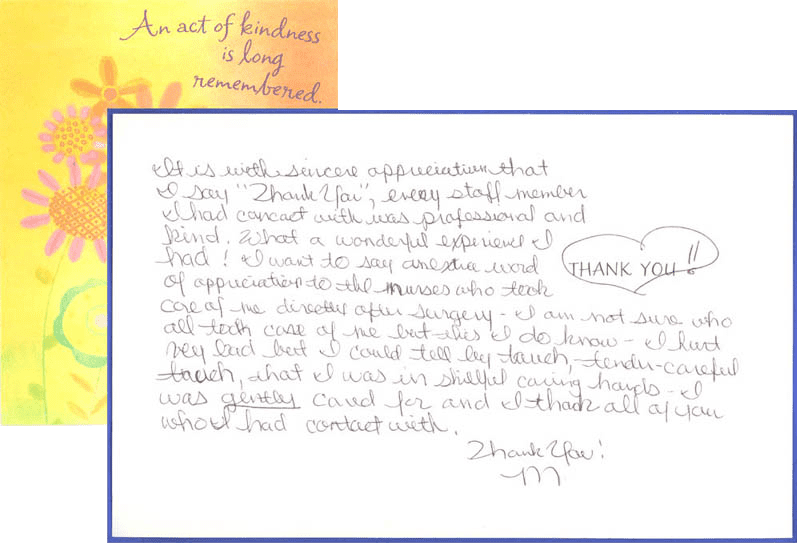 An act of kindness
is long
remembered.
It is with sincere appreciation that
I say "Thank You", every staff member
I had contact with was professional and
kind. What a wonderful experience I
had! I want to say an extra word
THANK YOU!!
of appreciation to the nurses who took
care of me directly after surgery - I am not sure who
all took care of me but this I do know - I hurt
very bad but I could tell by touch, tender-careful
touch, that I was in skillful caring hands - I
was gently cared for and I thank all of you
who I had contact with.
Thank You!
M